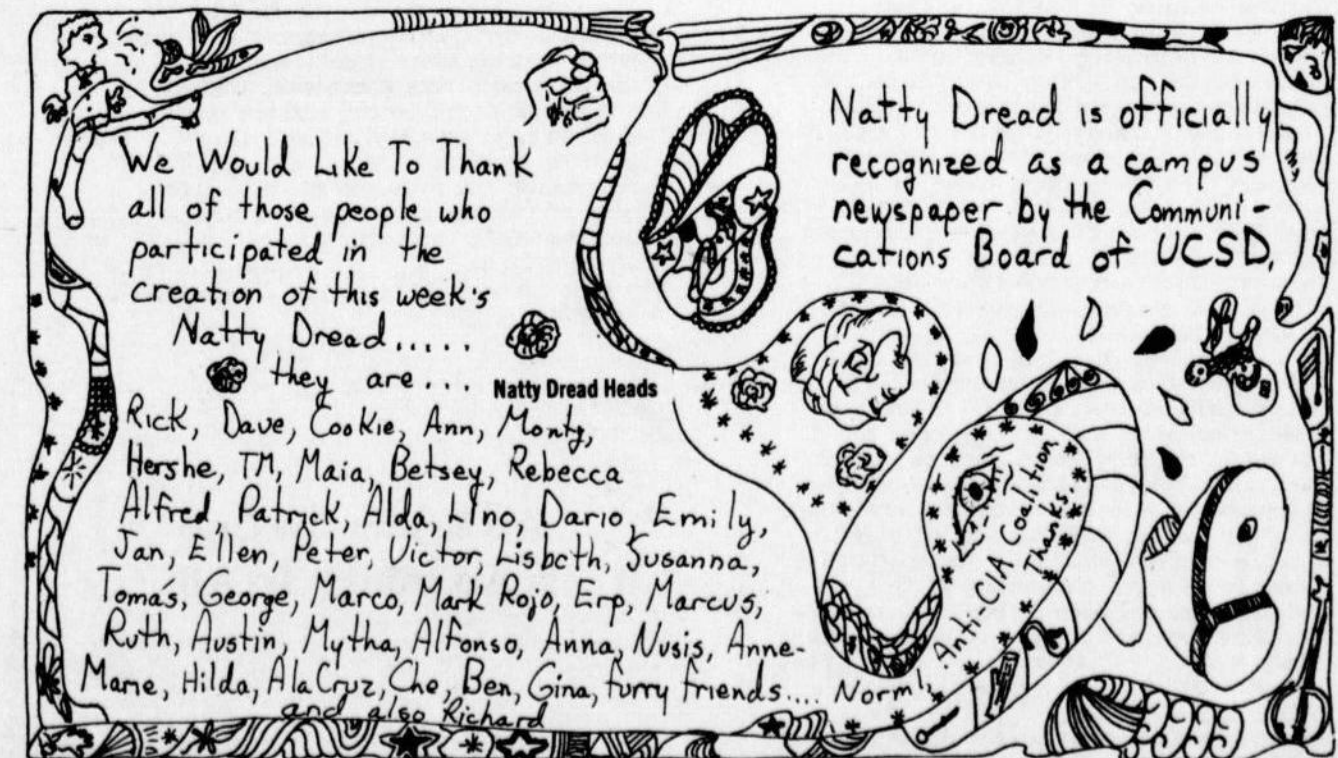 We Would Like To Thank
all of those people who
participated in the
creation of this week's
Natty Dread.....
they are...
Natty Dread Heads
Rick, Dave, Cookie, Ann, Monty,
Hershe, TM, Maia, Betsey, Rebecca
Alfred, Patrick, Alda, Lino, Dario, Emily,
Jan, Ellen, Peter, Victor, Lisbeth, Susanna,
Tomás, George, Marco, Mark Rojo, Erp, Marcus,
Ruth, Austin, Mytha, Alfonso, Anna, Nusis, Anne-
Marie, Hilda, Ala Cruz, Che, Ben, Gina, furry friends.... Norm!,
and also Richard
Natty Dread is officially
recognized as a campus
newspaper by the Communi-
cations Board of UCSD.
Anti-CIA Coalition
Thanks.